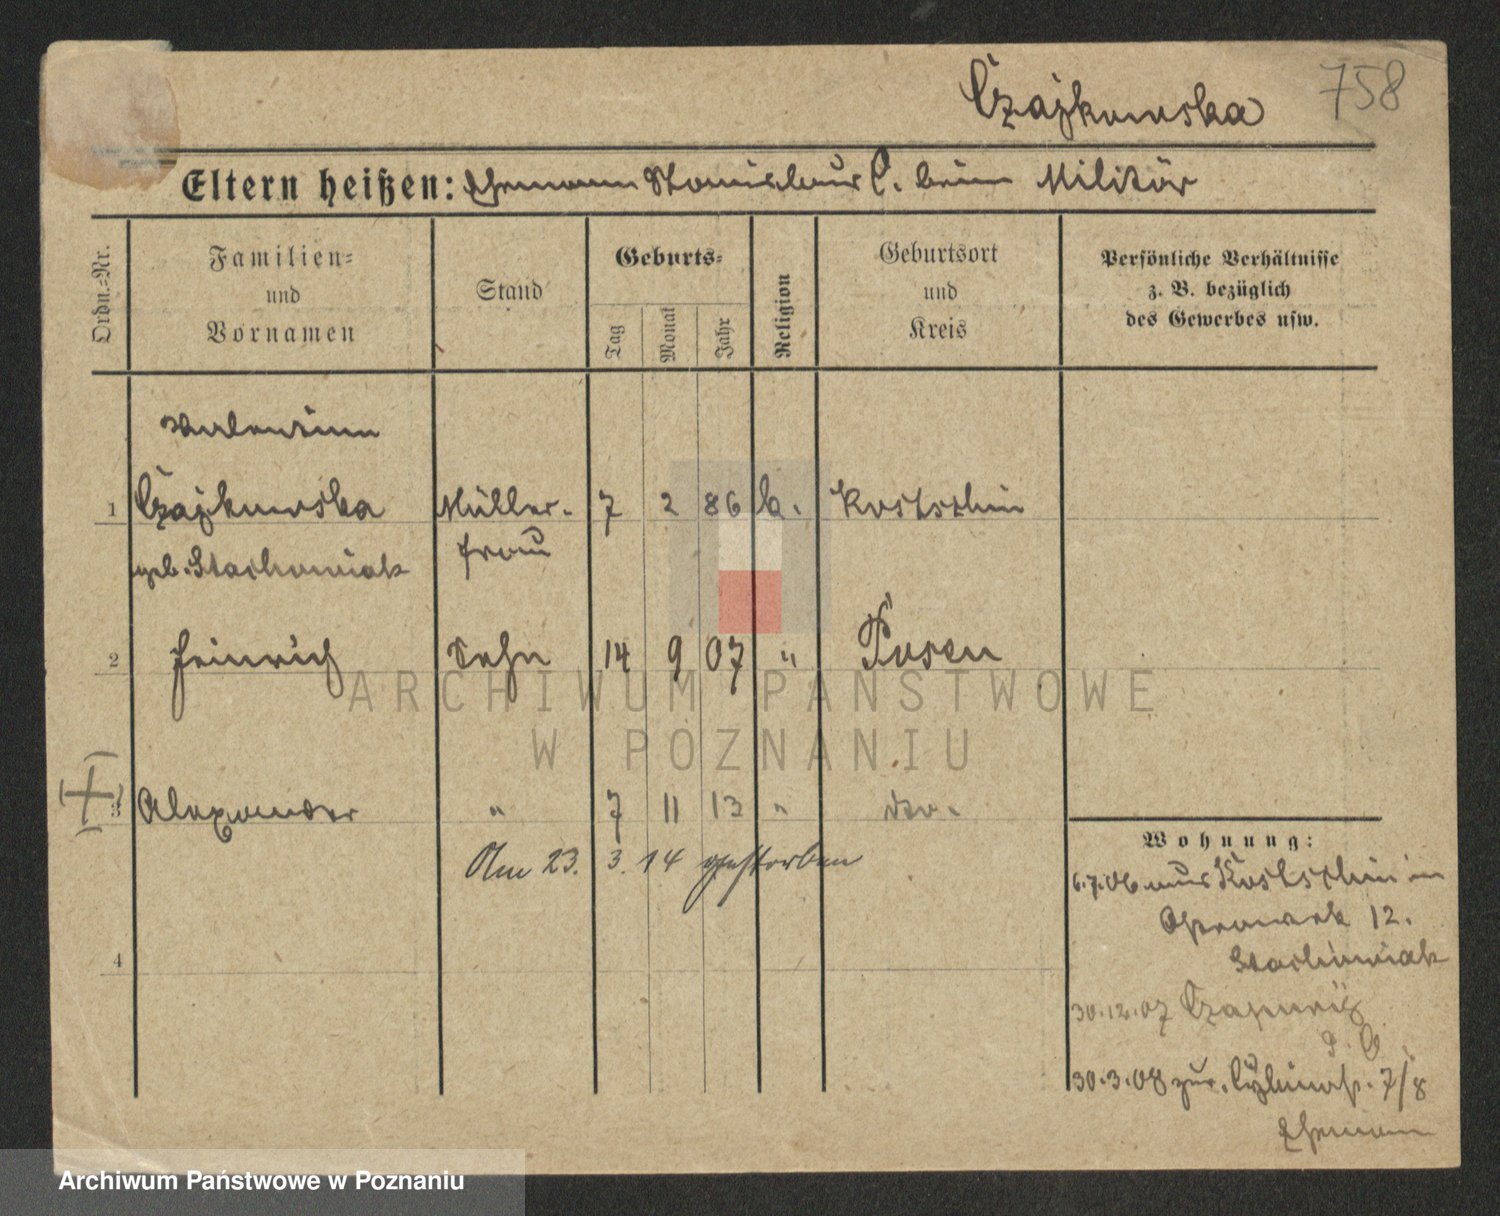 Czajkowska 758
Eltern heißen: Ehemann Stanislaus C. beim Militär
Ordn.-Nr.
Familien-
und
Vornamen
Stand
Geburts-
Tag
Monat
Jahr
Religion
Geburtsort
und
Kreis
Persönliche Verhältnisse
z. B. bezüglich
des Gewerbes usw.
Valentina
1 Czajkowska Müller- 7 2 86 k. Kostschin
geb. Stachowiak frau
2 Heinrich Sohn 14 9 07 " Posen
3 Alexander " 7 11 13 " do.
Am 23. 3. 14 gestorben
4
Wohnung:
6.7.06 aus Kostschin in
12.
Stachowiak
30.12.07
30.3.08 zur. Cybinastr. 7/8
Ehemann
ARCHIWUM PAŃSTWOWE
W POZNANIU
Archiwum Państwowe w Poznaniu